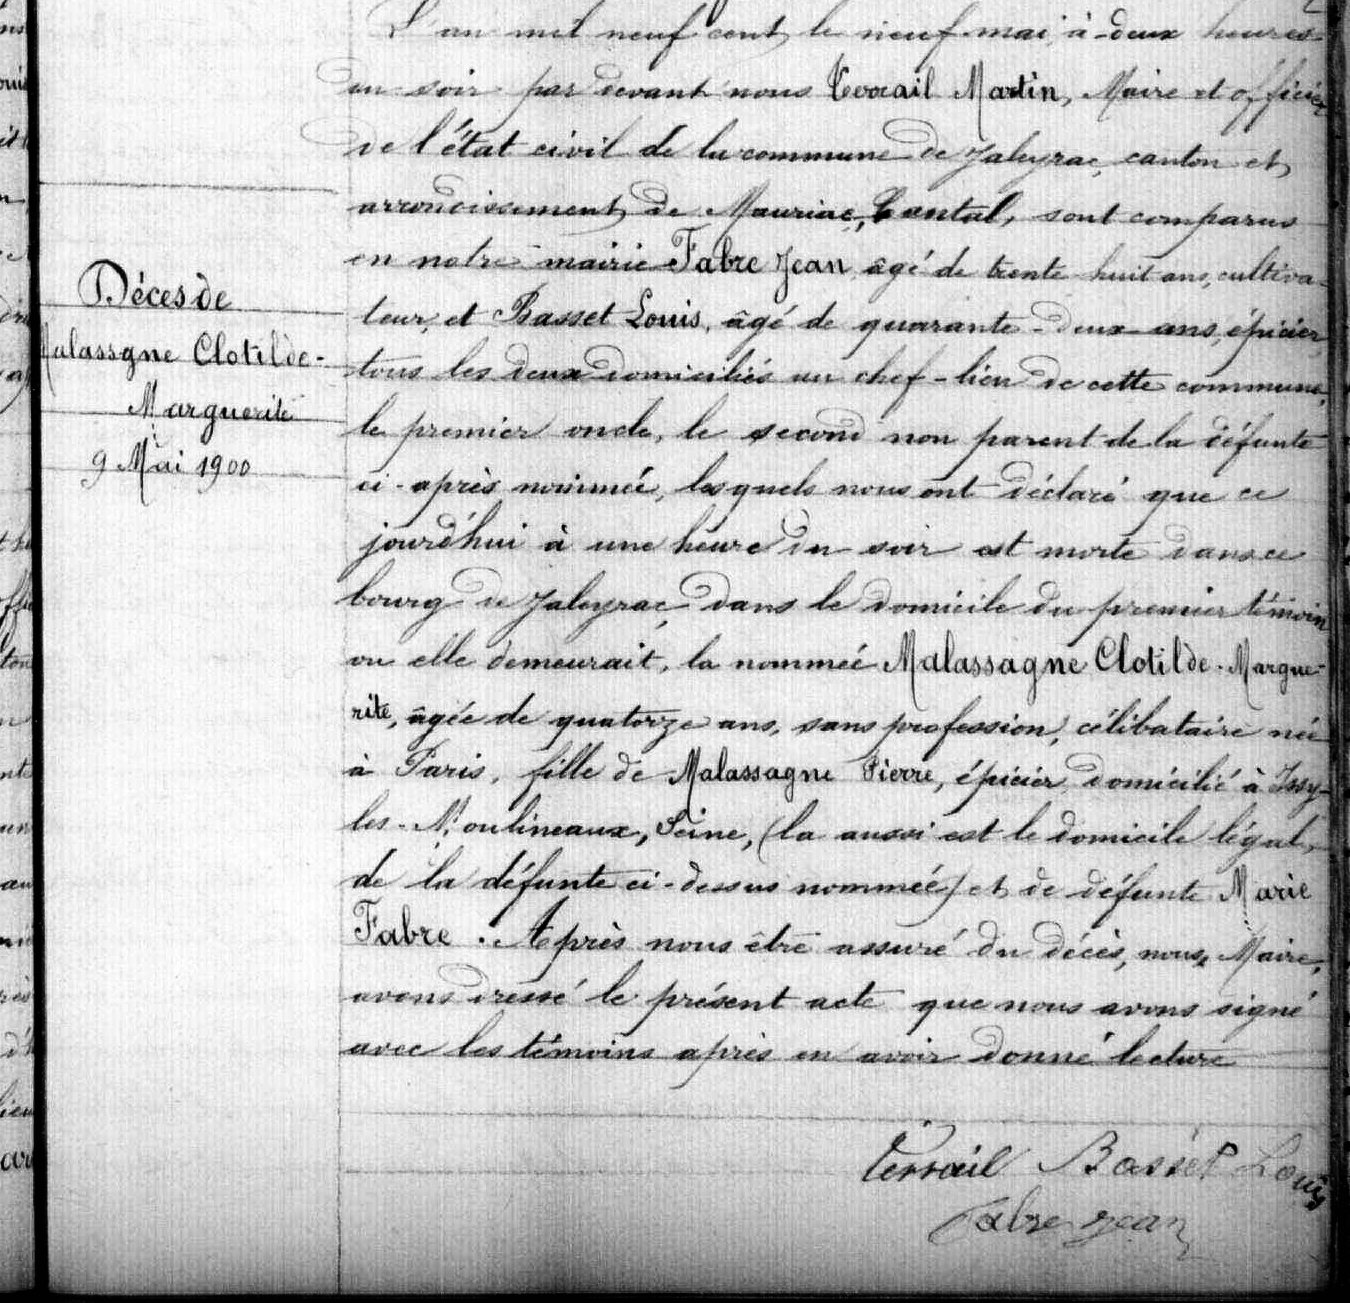 Décès de
Malassgne Clotilde-
Marguerite
9 Mai 1900
L'an mil neuf cent le neuf mai, à deux heures
du soir par devant nous Maire et officier
de l'état civil de la commune de Jaleyrac, canton et
arrondissement de Mauriac, Cantal, sont comparus
en notre mairie Fabre Jean âgé de trente-huit ans, cultiva-
teur, et Basset Louis, âgé de quarante-deux ans, épicier,
tous les deux domiciliés au chef-lieu de cette commune,
le premier oncle, le second non parent de la défunte
ci-après nommée, lesquels nous ont déclaré que ce
jourd'hui à une heure du soir est morte dans ce
bourg de Jaleyrac, dans le domicile du premier témoin
ou elle demeurait, la nommée Malassagne Clotilde-Margue-
rite, âgée de quatorze ans, sans profession, célibataire née
à Paris, fille de Malassagne Pierre, épicier, domicilié à Issy-
les-Moulineaux, Seine, (la aussi est le domicile légal,
de la défunte ci-dessus nommée) et de défunte Marie
Fabre. Après nous être assuré du décès, nous, Maire,
avons dressé le présent acte que nous avons signé
avec les témoins après en avoir donné lecture
Basset Louis
Fabre Jean